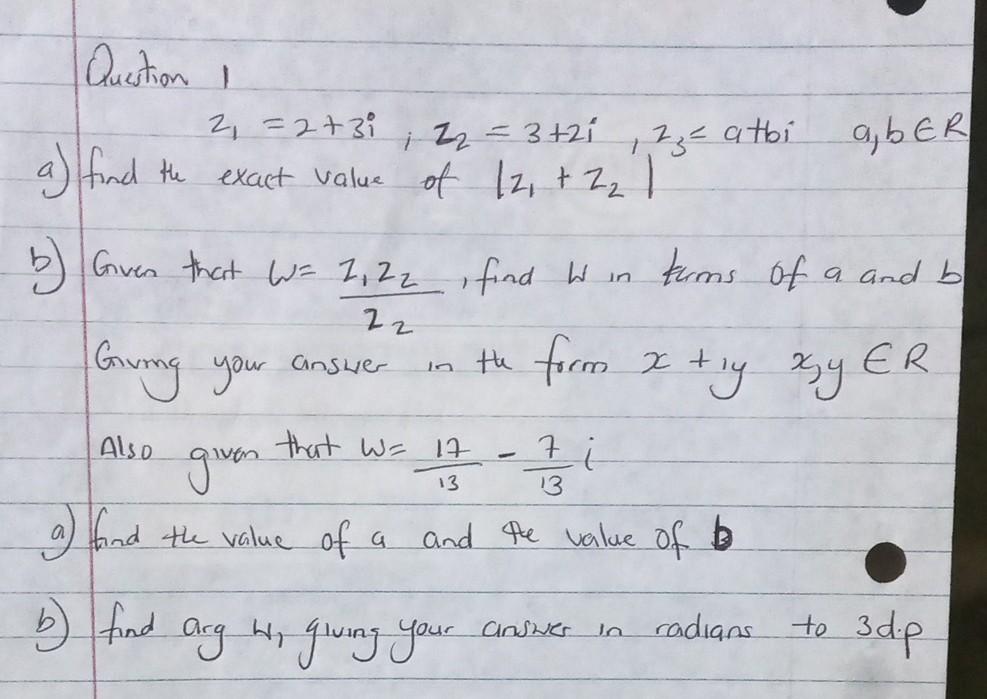 Question 1
z₁ = 2+3i , z₂ = 3+2i , z₃ = a+bi a,b ∈ R
a) find the exact value of |z₁ + z₂|
b) Given that w = z₁z₂ / z₂ , find w in terms of a and b
Giving your answer in the form x + iy x,y ∈ R
Also given that w = 17/13 - 7/13 i
a) find the value of a and the value of b
b) find arg w, giving your answer in radians to 3d.p